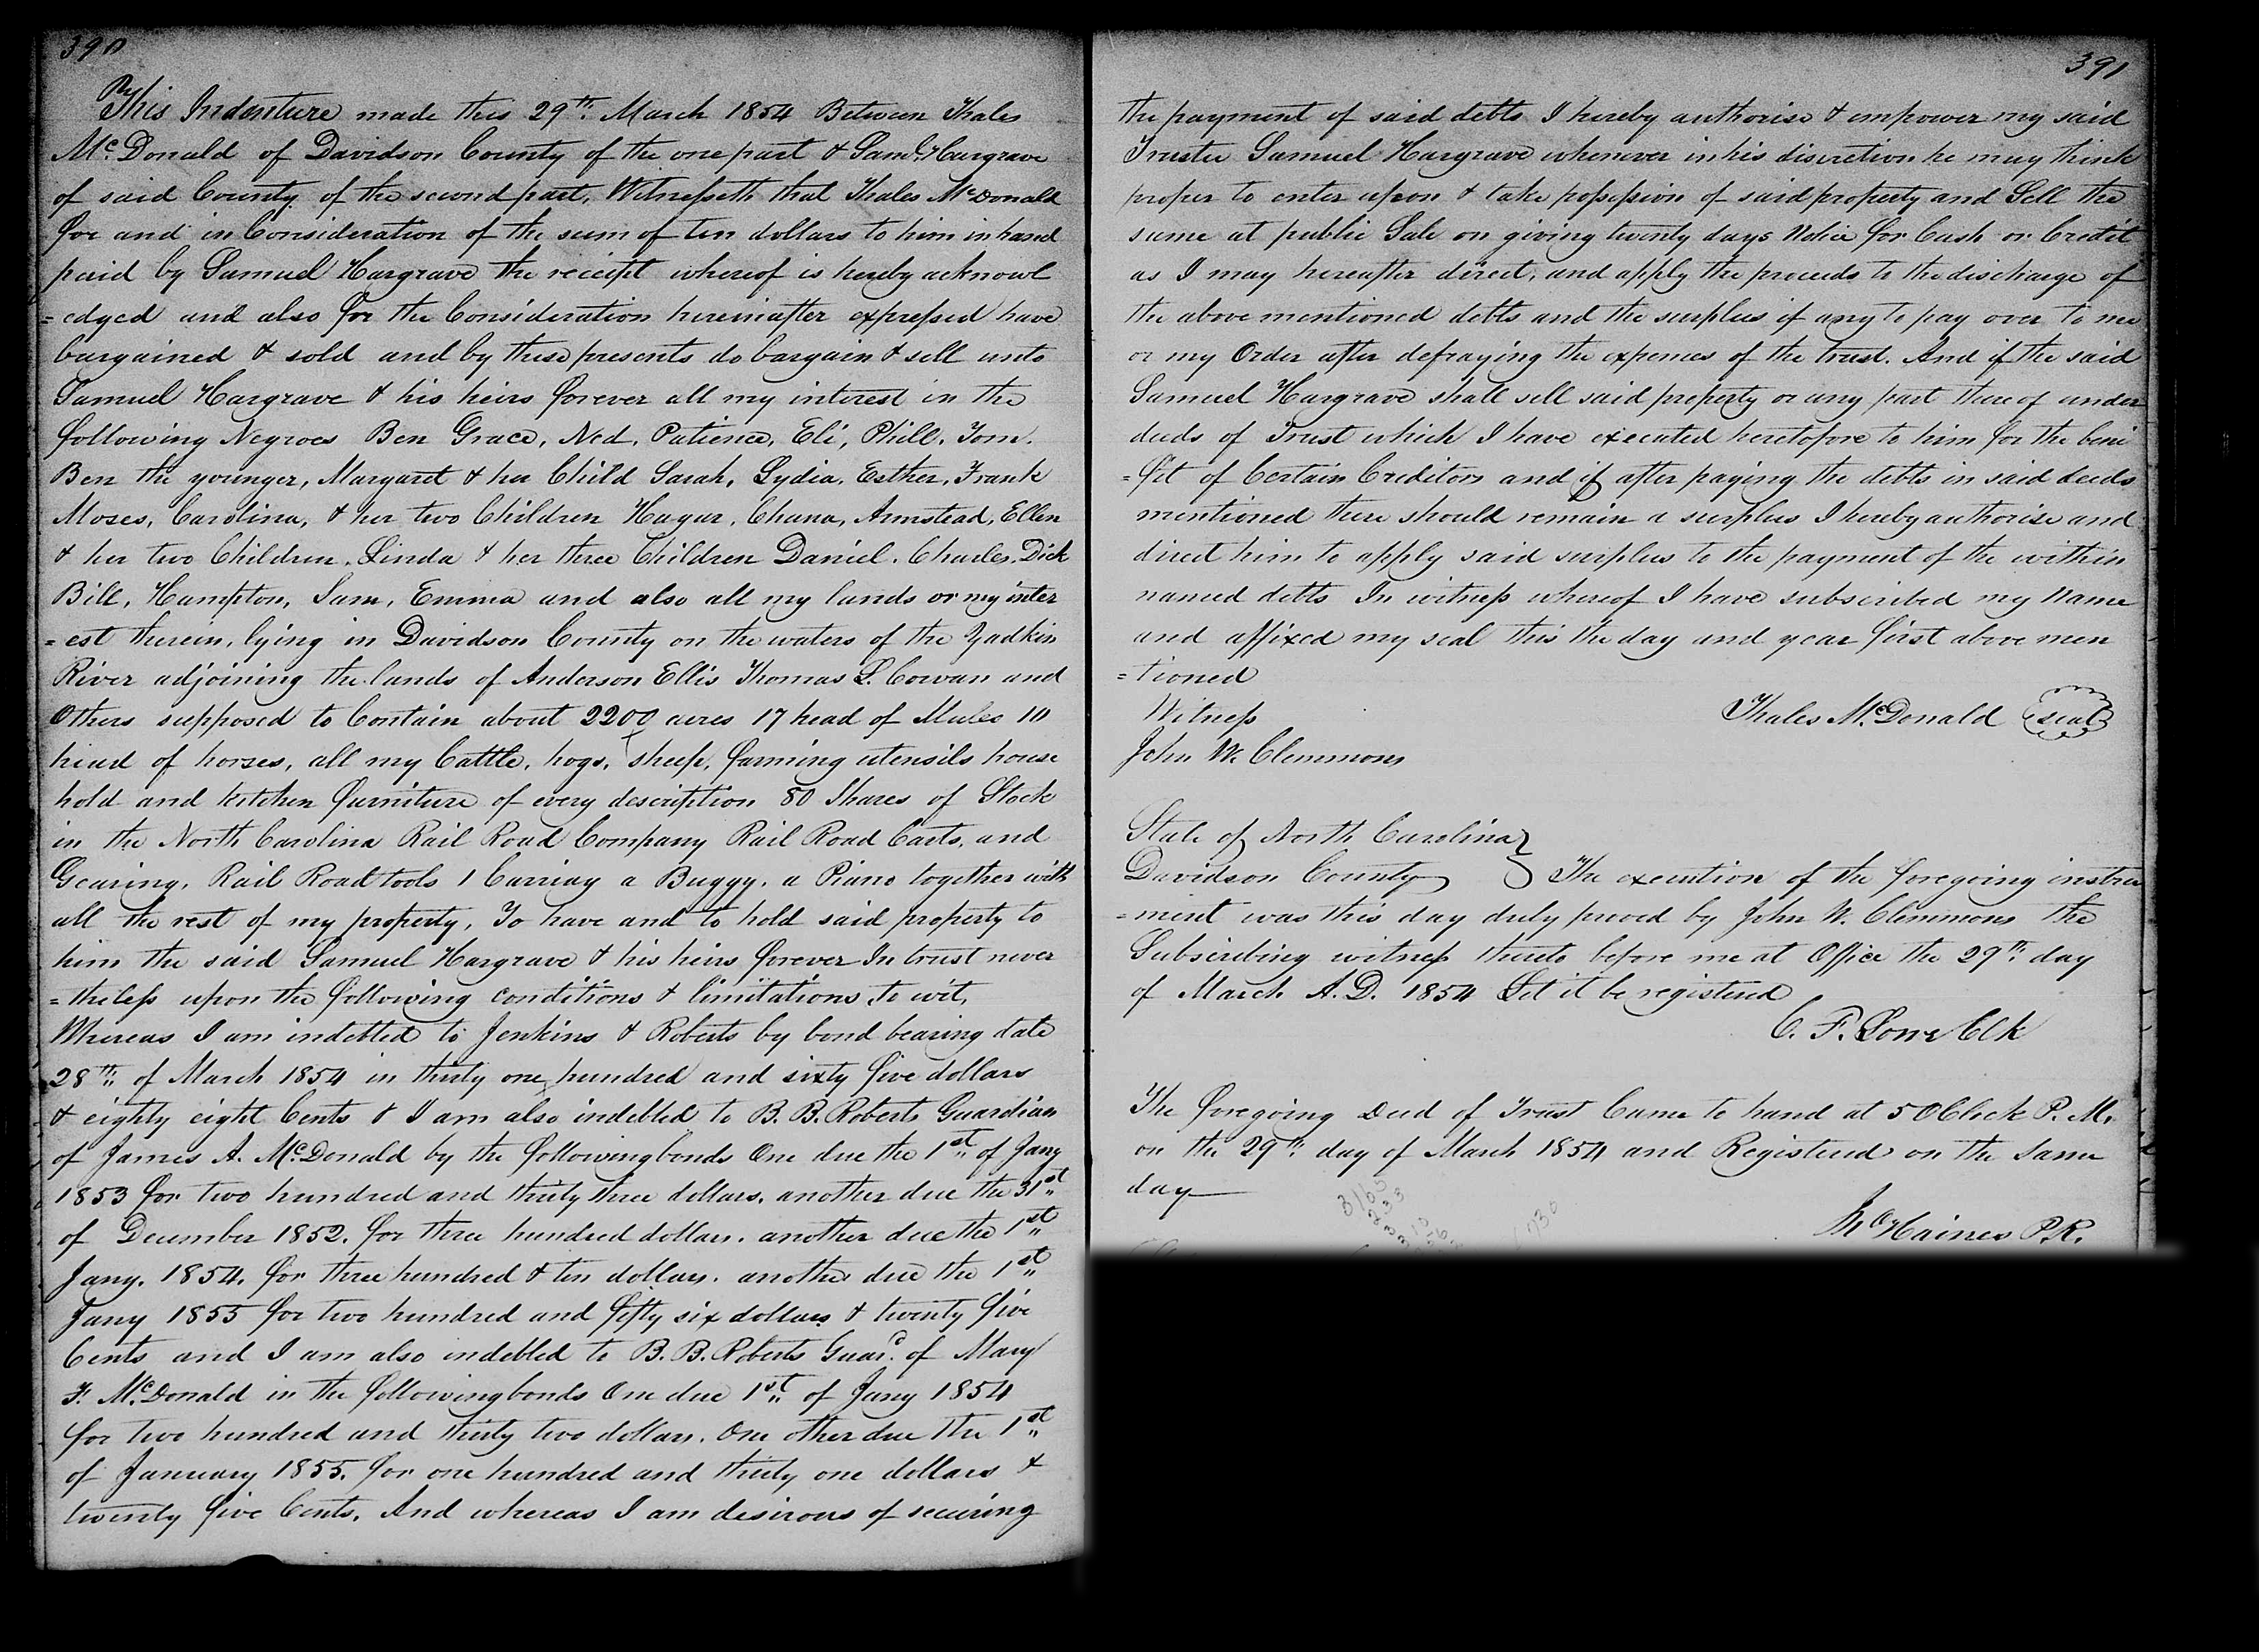 390
This Indenture made this 29th March 1854 Between Thales
McDonald of Davidson County of the one part & Saml. Hargrave
of said County of the second part, Witnesseth that Thales McDonald
for and in Consideration of the sum of ten dollars to him in hand
paid by Samuel Hargrave the receipt whereof is hereby acknowl
=edged and also for the Consideration hereinafter expressed have
bargained & sold and by these presents do bargain & sell unto
Samuel Hargrave & his heirs forever all my interest in the
following Negroes Ben Grace, Ned, Patience, Eli, Phill, Tom.
Ben the younger, Margaret & her Child Sarah, Lydia, Esther, Frank
Moses, Carolina, & her two Children Hagar, Chana, Armstead, Ellen
& her two Children, Linda & her three Children Daniel, Charles, Dick
Bill, Hampton, Sam, Emma and also all my lands or my inter
=est therein, lying in Davidson County on the waters of the Yadkin
River adjoining the lands of Anderson Ellis Thomas L. Cowan and
Others supposed to Contain about 2200 acres 17 head of Mules 10
head of horses, all my Cattle, hogs, sheep, farming utensils house
hold and kitchen furniture of every description 80 Shares of Stock
in the North Carolina Rail Road Company Rail Road Carts, and
Gearing, Rail Road tools 1 Carriag a Buggy, a Piano together with
all the rest of my property, To have and to hold said property to
him the said Samuel Hargrave & his heirs forever In trust never
=theless upon the following conditions & limitations to wit,
Whereas I am indebted to Jenkins & Roberts by bond bearing date
28th of March 1854 in thirty one hundred and sixty five dollars
& eighty eight Cents & I am also indebted to B. B. Roberts Guardian
of James A. McDonald by the following bonds One due the 1st of Jany
1853 for two hundred and thirty three dollars, another due the 31st
of December 1852, for three hundred dollars, another due the 1st
Jany. 1854, for three hundred & ten dollars, another due the 1st
Jany 1855 for two hundred and fifty six dollars & twenty five
Cents and I am also indebted to B. B. Roberts Guard. of Mary
F. McDonald in the following bonds One due 1st of Jany 1854
for two hundred and thirty two dollars, One other due the 1st
of January 1855, for one hundred and thirty one dollars &
twenty five Cents, And whereas I am desirous of securing
391
the payment of said debts I hereby authorise & empower my said
Trustee Samuel Hargrave whenever in his discretion he may think
proper to enter upon & take possession of said property and Sell the
same at public Sale on giving twenty days Notice for Cash or Credit
as I may hereafter direct, and apply the proceeds to the discharge of
the above mentioned debts and the surplus if any to pay over to me
or my Order after defraying the expenses of the trust. And if the said
Samuel Hargrave shall sell said property or any part thereof under
deeds of Trust which I have executed heretofore to him for the bene
=fit of Certain Creditors and if after paying the debts in said deeds
mentioned there should remain a surplus I hereby authorise and
direct him to apply said surplus to the payment of the within
named debts In witness whereof I have subscribed my Name
and affixed my seal this the day and year first above men
=tioned
Witness
Thales McDonald seal
John W. Clemmons
State of North Carolina
Davidson County The execution of the foregoing instru
=ment was this day duly proved by John W. Clemmons the
Subscribing witness thereto before me at Office the 29th day
of March A.D. 1854 Let it be registered
C. F. Lowe Clk
The foregoing Deed of Trust Came to hand at 5 OClock P. M.
on the 29th day of March 1854 and Registered on the Same
day
3165
233
310
Haines P.R.